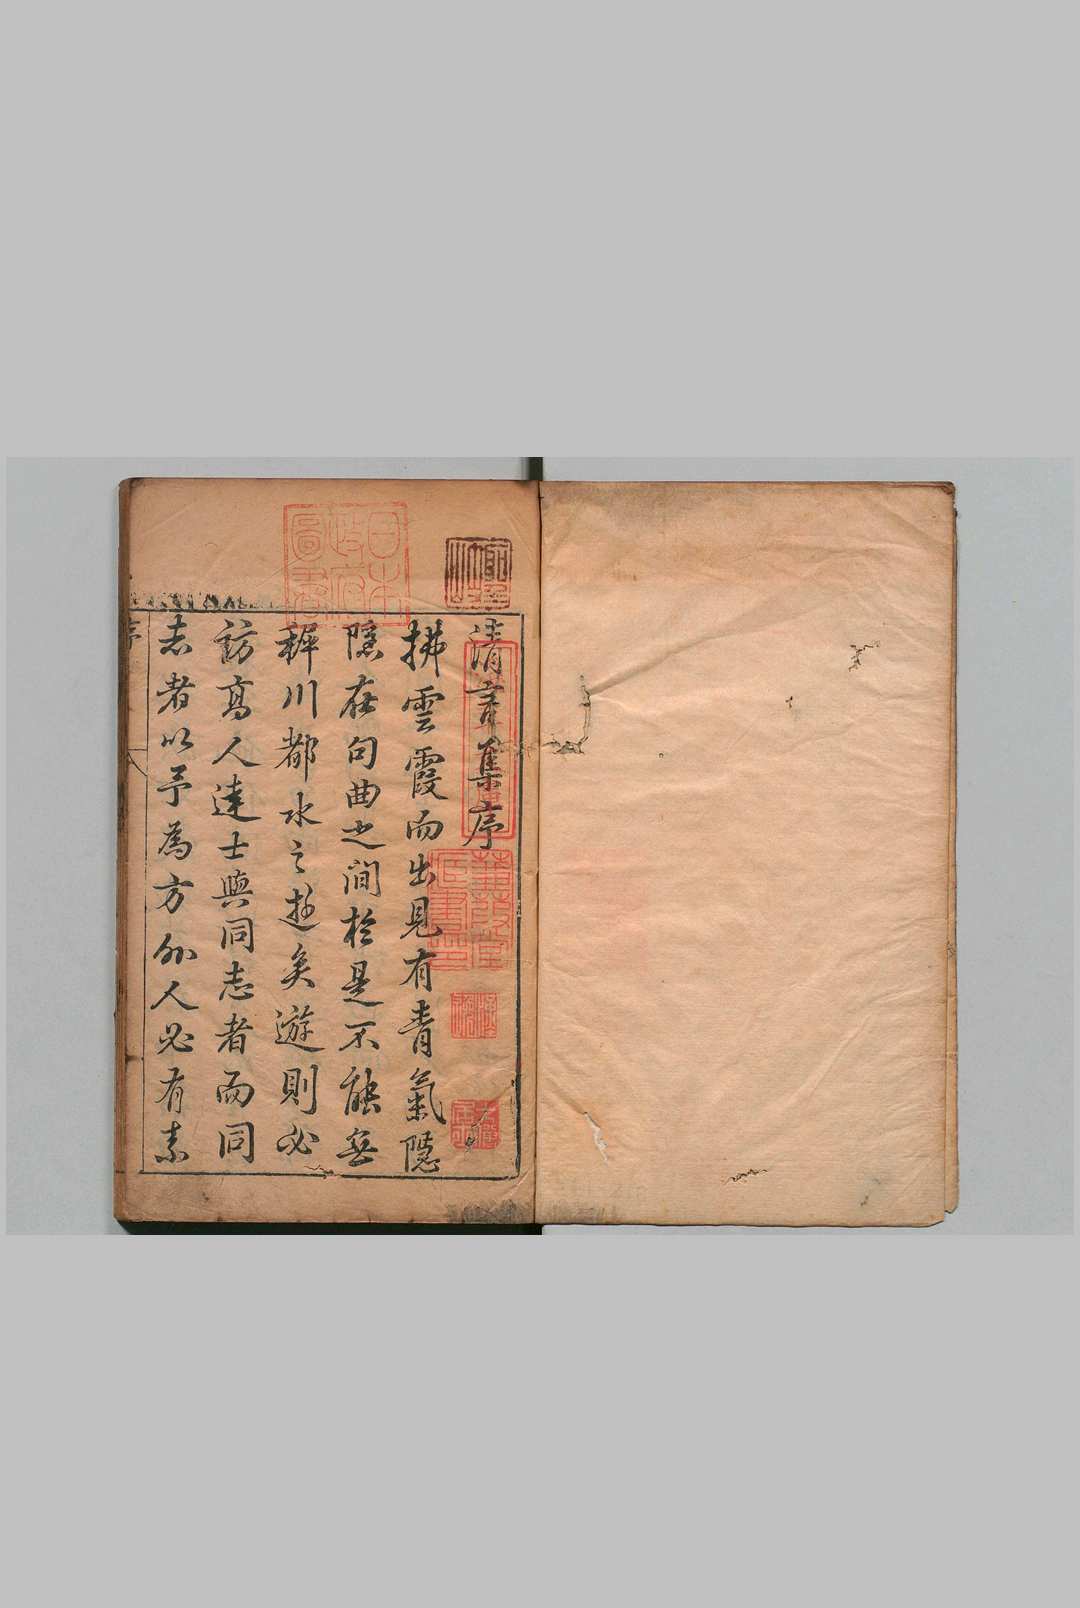 清章集序
拂雲霞而出見有青氣隱
隱在句曲之間於是不能無
穉川都水之遊矣遊則必
訪高人達士與同志者而同
志者以予為方外人必有素
序
日本政府圖書